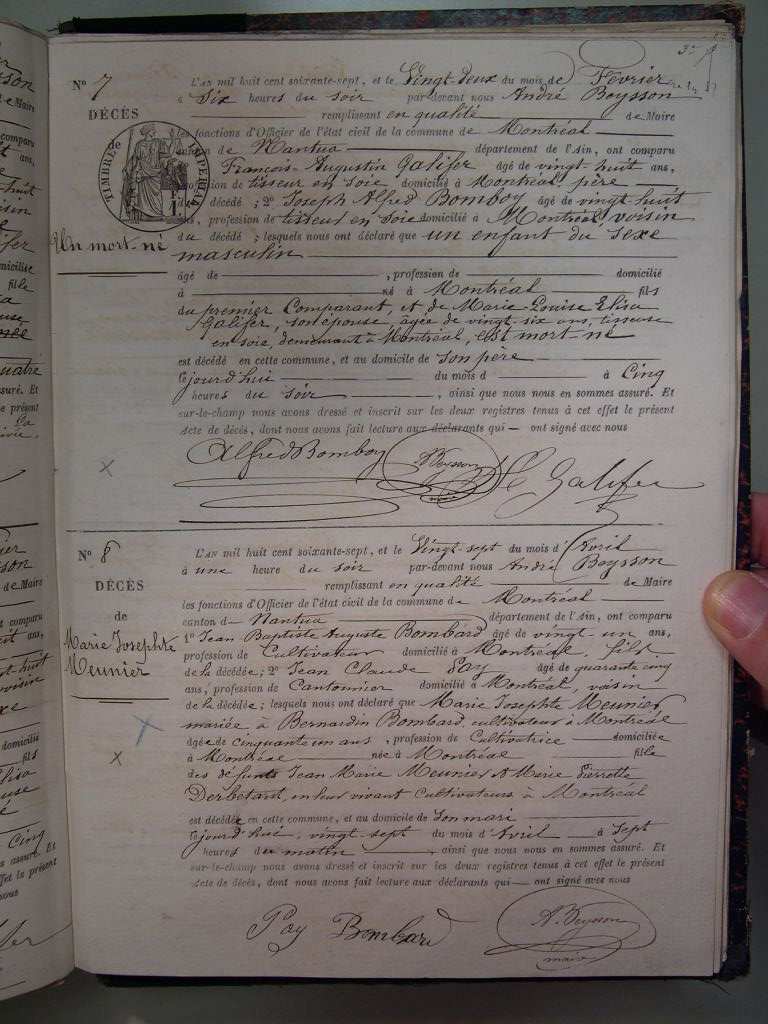 Nº 7
DÉCÈS
de
TIMBRE IMPÉRIAL
Un mort-né
L'AN mil huit cent soixante-sept, et le Vingt-deux du mois de Février
à Six heures du soir par-devant nous André Beysson
remplissant en qualité de Maire
les fonctions d'Officier de l'état civil de la commune de Montréal
canton de Nantua département de l'Ain, ont comparu
François-Augustin Galifer âgé de vingt huit ans,
profession de tisseur en soie domicilié à Montréal, père
du décédé; 2º Joseph Alfred Bomboy âgé de vingt huit
ans, profession de tisseur en soie domicilié à Montréal, voisin
du décédé; lesquels nous ont déclaré que un enfant du sexe
masculin
âgé de , profession de domicilié
à né à Montréal fils
du premier Comparant, et de Marie Louise Elisa
Galifer, son épouse, âgée de vingt-six ans, tisseuse
en soie, demeurant à Montréal, est mort-né
est décédé en cette commune, et au domicile de son père
cejourd'hui du mois d à Cinq
heures du soir , ainsi que nous nous en sommes assuré. Et
sur-le-champ nous avons dressé et inscrit sur les deux registres tenus à cet effet le présent
Acte de décès, dont nous avons fait lecture aux déclarants qui ont signé avec nous
Alfred Bomboy A Beysson maire Galifer
Nº 8
DÉCÈS
de
Marie Josephte
Meunier
L'AN mil huit cent soixante-sept, et le Vingt-sept du mois d'Avril
à une heure du soir par-devant nous André Beysson
remplissant en qualité de Maire
les fonctions d'Officier de l'état civil de la commune de Montréal
canton de Nantua département de l'Ain, ont comparu
1º Jean Baptiste Auguste Bombard âgé de vingt-un ans,
profession de Cultivateur domicilié à Montréal, fils
de la décédée; 2º Jean Claude Pay âgé de quarante cinq
ans, profession de Cantonnier domicilié à Montréal, voisin
de la décédée; lesquels nous ont déclaré que Marie Josephte Meunier,
mariée à Bernardin Bombard cultivateur à Montréal
âgée de cinquante un ans, profession de Cultivatrice domiciliée
à Montréal née à Montréal fille
des défunts Jean Marie Meunier et Marie Pierrette
en leur vivant Cultivateurs à Montréal
est décédée en cette commune, et au domicile de son mari
cejourd'hui, vingt-sept du mois d'Avril à Sept
heures du matin , ainsi que nous nous en sommes assuré. Et
sur-le-champ nous avons dressé et inscrit sur les deux registres tenus à cet effet le présent
Acte de décès, dont nous avons fait lecture aux déclarants qui ont signé avec nous
Pay Bombard A. Beysson maire